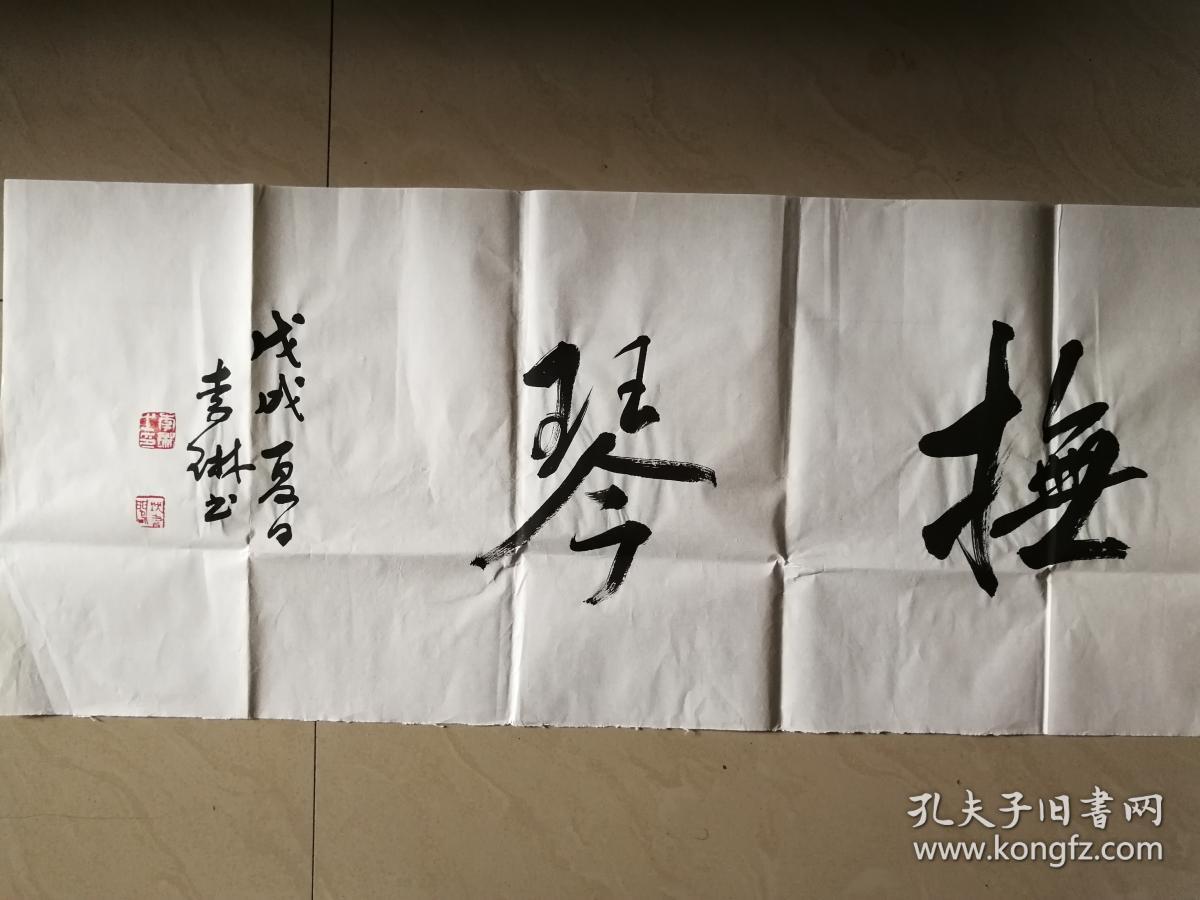 撫琴
戊戌夏日
李琳书
孔夫子旧書网
www.kongfz.com